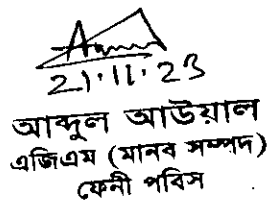 21.11.23
আব্দুল আউয়াল
এজিএম (মানব সম্পদ)
ফেনী পবিস